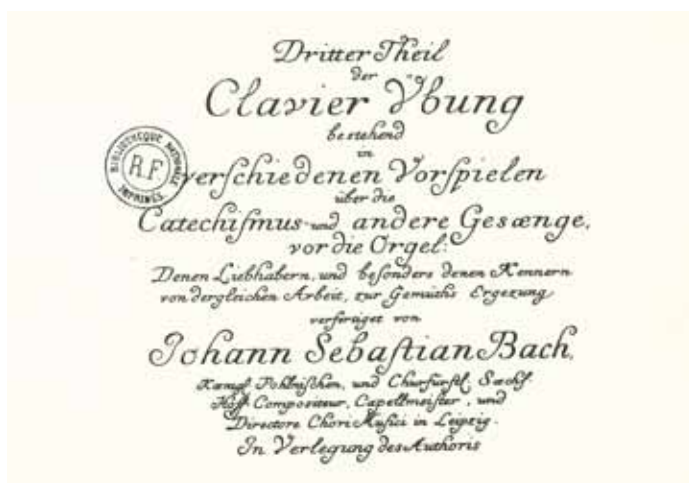 Dritter Theil
der
Clavier Übung
bestehend
in
verschiedenen Vorspielen
über die
Catechismus- und andere Gesænge,
vor die Orgel:
Denen Liebhabern, und besonders denen Kennern
von dergleichen Arbeit, zur Gemüths Ergezung
verfertiget von
Johann Sebastian Bach,
Kœnigl. Pohlnischen, und Churfürstl. Sæchs.
Hoff-Compositeur, Capellmeister, und
Directore Chori Musici in Leipzig.
In Verlegung des Authoris
BIBLIOTHEQUE NATIONALE
R.F.
IMPRIMÉS.